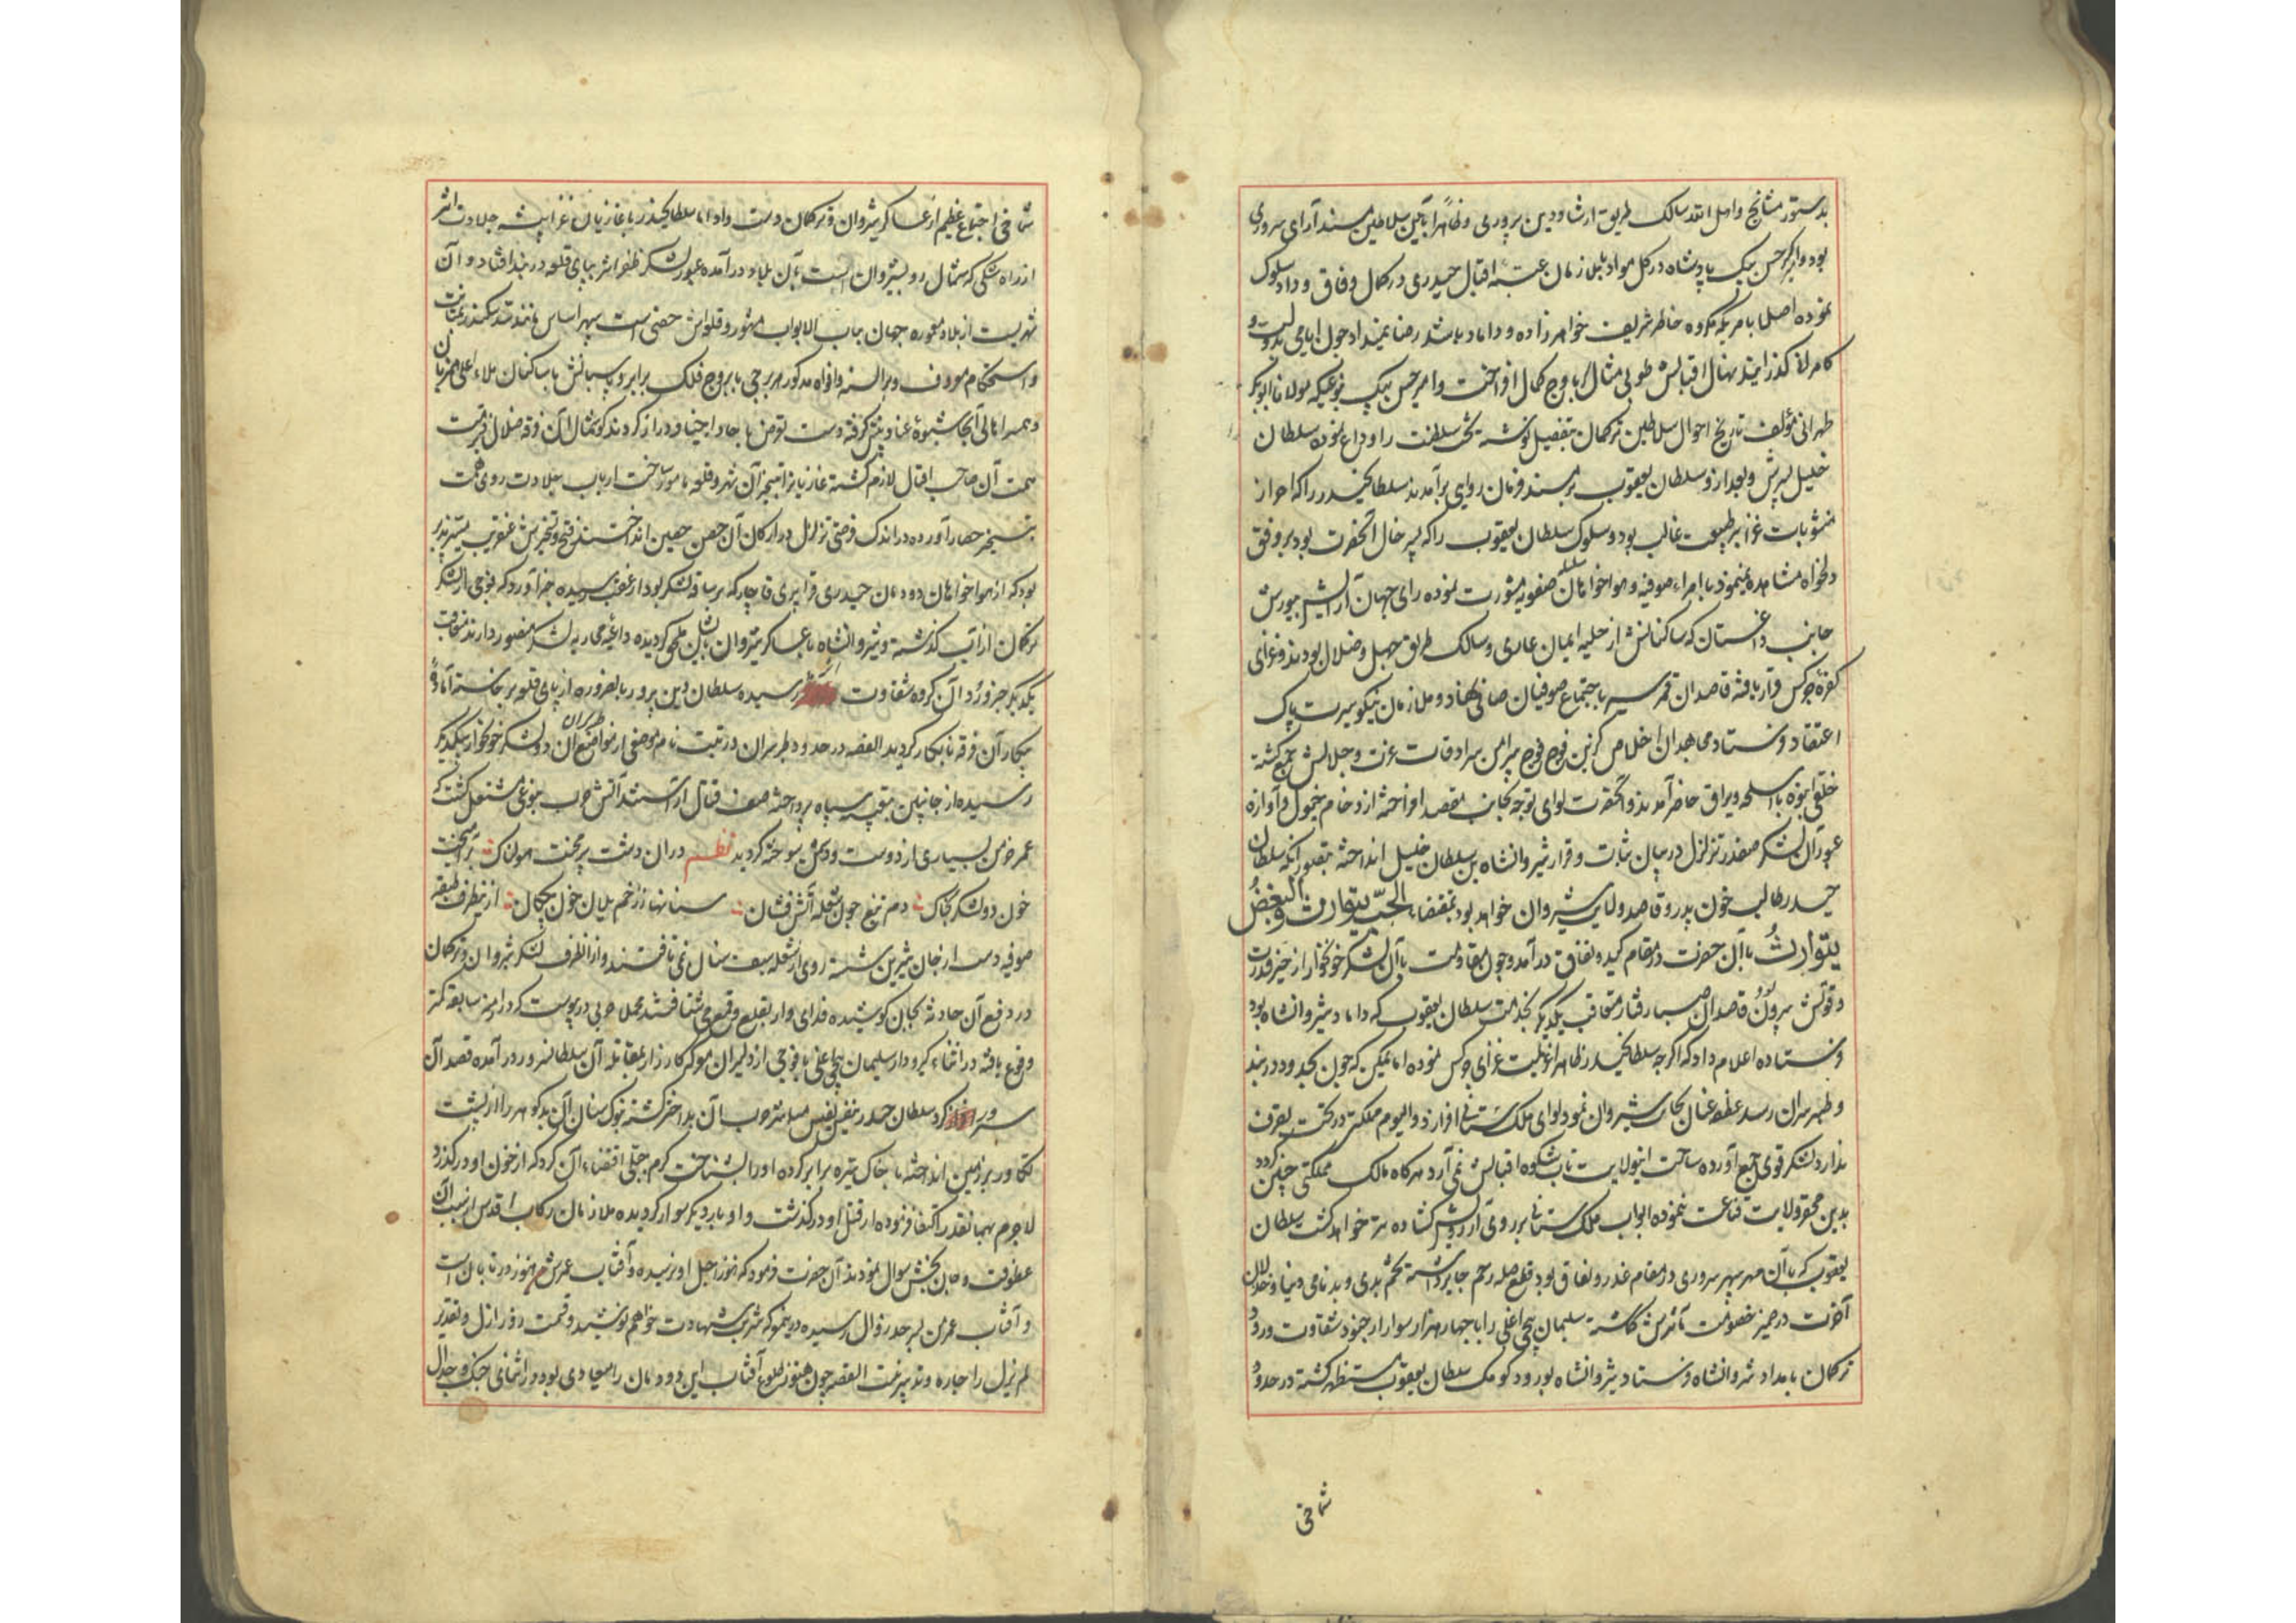 بدستور مشایخ واصل الله سالک طریق ارشاد و دین پروری و ظاهرا بآیین سلاطین مسند آرای سروری
بود و امیر کبیر حسن بیک پادشاه در کل مواد بلبل زمان عتبه اقبال حیدری در کمال وفاق و وداد سلوک
نموده اصلا بامری که مکروه خاطر شریف خواهرزاده و داماد باشد رضا نمیداد چون ایامی بدولت و
کامرانی گذرانید نهال اقبالش طوبی مثال باوج کمال افراخت و امیر حسن بیک بنوعیکه مولانا ابوبکر
طهرانی مؤلف تاریخ احوال سلاطین ترکمان بتفصیل نوشته تخت سلطنت را وداع نموده سلطان
خلیل پسرش و بعد از و سلطان یعقوب بر مسند فرمان روایی برآمدند سلطان حیدر را که احراز
مثوبات غزا بر طبیعت غالب بود و سلوک سلطان یعقوب را که پسر خال آنحضرت بود بر وفق
دلخواه مشاهده نمینمود با امراء صوفیه و هواخواهان سلسله صفویه مشورت نموده رای جهان آرایش بیورش
جانب داغستان که ساکنانش از حلیه ایمان عاری و سالک طریق جهل و ضلال بودند و غزای
کفره چرکس قرار یافته قاصدان قمر سیر باجتماع صوفیان صافی نهاد و ملازمان نیکو سیرت پاک
اعتقاد فرستاد مجاهدان اخلاص گزین فوج فوج پیرامن سرادقات عزت و جلالش جمع گشته
خلقی انبوه با اسلحه و یراق حاضر آمدند و آنحضرت لوای توجه بجانب مقصد افراخته از دحام خیول و آوازه
عبور آن لشکر صفدر تزلزل در بنیان ثبات و قرار شیروانشاه بن سلطان خلیل انداخته بتصور آنکه سلطان
حیدر طالب خون پدر و قاصد ولایت شیروان خواهد بود بمقتضاء الحبّ یتوارث والبغضُ
یتوارثُ با آن حضرت در مقام کید و نفاق درآمد و چون مقاومت با آن لشکر خونخوار از حیز قدرت
و قوتش بیرون بود قاصدان صبا رفتار متعاقب یکدیگر بخدمت سلطان یعقوب که داماد شیروانشاه بود
فرستاده اعلام داد که اگرچه سلطان حیدر ظاهرا نیت غزای چرکس نموده اما یمکن که چون بحدود دربند
و طبرسران رسد عطف عنان بجانب شیروان نموده لوای ملک ستانی افرازد و الیوم مملکتی در تحت تصرف
ندارد لشکر قوی جمع آورده ساحت اینولایت تاب شکوه اقبالش نمی آرد هرگاه مالک مملکتی چنین گردد
بدین محقر ولایت قناعت ننموده ابواب ملک ستانی بر روی آرزویش گشاده تر خواهد گشت سلطان
یعقوب که با آن مهر سپهر سروری در مقام غدر و نفاق بود قطع صله رحم جایز داشته تخم بدی و بدنامی دنیا و خذلان
آخرت در زمین خصومت کاشته سلیمان بیجن اغلی را با چهار هزار سوار از جنود شقاوت ورود
ترکمان بامداد شیروانشاه فرستاد شیروانشاه بورود کومک سلطان یعقوب مستظهر گشته در حدود
شماخی
شماخی اجتماع عظیم از عساکر شیروان و ترکمان دست داد اما سلطان حیدر با غازیان غزا پیشه جلادت اثر
از راه شکی که شمال رو بشیروان است بآن بلاد درآمده عبور لشکر ظفر اثر بپای قلعه دربند افتاد و آن
شهریست از بلاد معموره جهان بباب الابواب مشهور و قلعه‌اش حصنی است سپهر اساس مانند سد سکندر بمتانت
و استحکام موصوف و بر السنه و افواه مذکور هر برجی با بروج فلک برابر و پاسبانش با ساکنان ملاء اعلی همزبان
و همسر اهالی آنجا شیوه عناد پیش گرفته دست تعرض بجا و ابیجا دراز کردند گوشمال آن فرقه ضلال بر ذمت
همت آن صاحب اقبال لازم گشته غازیانرا بتسخیر آن شهر و قلعه مامور ساخت ارباب جلادت روی همت
بتسخیر حصار آورده در اندک فرصتی تزلزل در ارکان آن حصن حصین انداختند فتح و تسخیرش عنقریب میسر پذیر
بود که از هواخواهان دودمان حیدری قرا پیری قاجار که بر ساقه لشکر بود از عقب رسیده خبر آورد که فوجی از لشکر
ترکمان از آب گذشته و شیروانشاه با عساکر شیروان بایشان ملحق گردیده داعیه محاربه لشکر منصور دارند متعاقب
یکدیگر خبر ورود آن گروه شقاوت اثر رسیده سلطان دین پرور بالضروره از پای قلعه برخاسته آماده
پیکار آن فرقه نابکار گردید القصه در حدود طبرسران در تبت نام موضعی از مواضع طبرسران آن دو لشکر خونخوار بیکدیگر
رسیده از جانبین بتعبیه سپاه پرداخته صف قتال آراستند آتش حرب بنوعی مشتعل گشت که
عمر خرمن بسیاری از دوست و دشمن سوخته گردید نظم دران دشت پر محنت هولناک برآمیخت
خون دو لشکر بخاک دم تیغ چون شعله آتش فشان سنانها ز زخم یلان خون چکان ازینطرف طبقه
صوفیه دست از جان شیرین شسته روی از شعله سیف سنان نمی تافتند و از انطرف لشکر شیروان و ترکمان
در دفع آن حادثه بجان کوشیده فدایی وار بقلع و قمع می شتافتند مجملا حربی در پیوست که در ازمنه سابقه کمتر
وقوع یافته در اثناء گیر و دار سلیمان بیجن اغلی با فوجی از دلیران معرکه کارزار بمقابله آن سلطان سرور درآمده قصد آن
سرور کرد سلطان حیدر بنفس نفیس مباشر حرب آن بد اختر گشته بنوک سنان آن بد گوهر را از پشت
تکاور بر زمین انداخته با خاک تیره برابر کرده او را بشناخت کرم جبلی اقتضاء آن کرد که از خون او در گذرد
لاجرم بهمانقدر اکتفا فرموده از قتل او درگذشت و او بار دیگر سوار گردیده ملازمان رکاب اقدس از سبب آن
عطوفت و جان بخشی سوال نمودند آن حضرت فرمود که هنوز اجل او نرسیده و آفتاب عمرش هنوز در تابانی است
و آفتاب عمر من بسرحد زوال رسیده درینمعرکه شربت شهادت خواهم نوشید و قسمت روز ازل و تقدیر
لم یزل را چاره و تدبیر نیست القصه چون هنوز طلوع آفتاب این دودمان را میعادی بود در اثنای جنگ و جدال